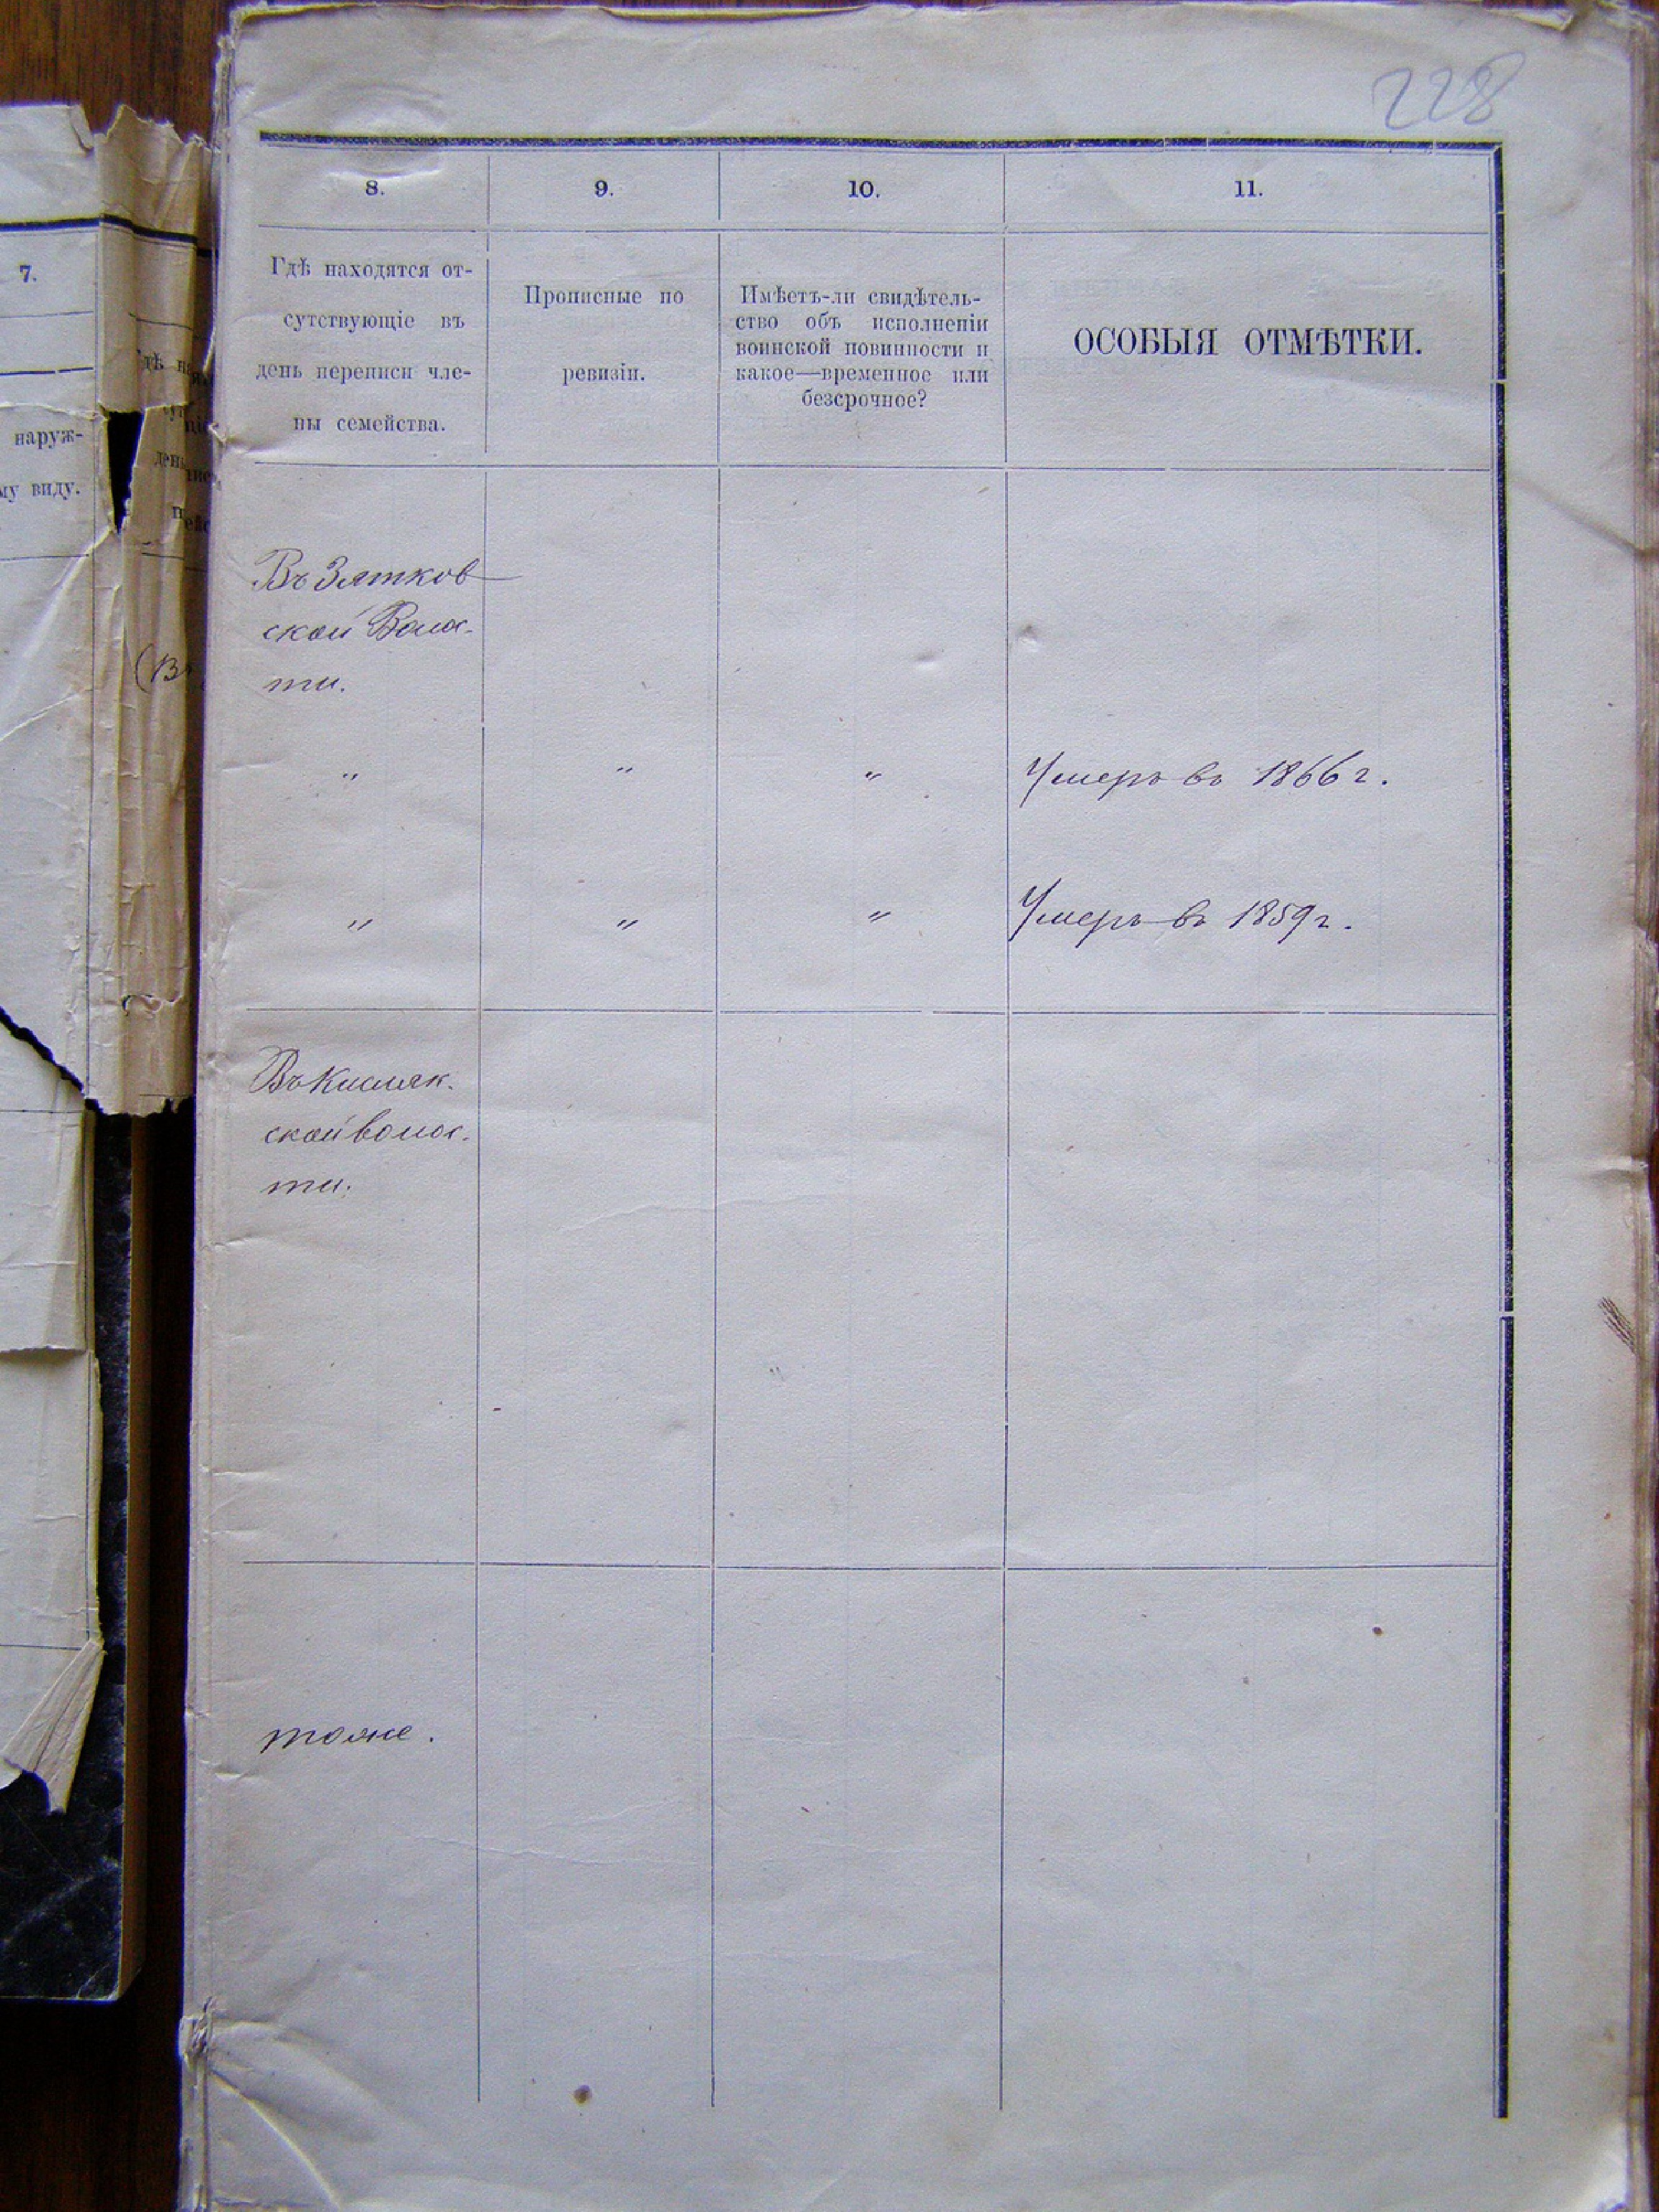 228
7.
наруж-
му виду.
8.
9.
10.
11.
Гдѣ находятся от-
сутствующіе въ
день переписи чле-
ны семейства.
Прописные по
ревизіи.
Имѣетъ-ли свидѣтель-
ство объ исполненіи
воинской повинности и
какое—временное или
безсрочное?
ОСОБЫЯ ОТМѢТКИ.
Въ Зятков
ской Волос-
ти.
" " " Умеръ въ 1866 г.
" " " Умеръ въ 1859 г.
Въ Кисляк.
ской волос.
ти.
"
тоже.